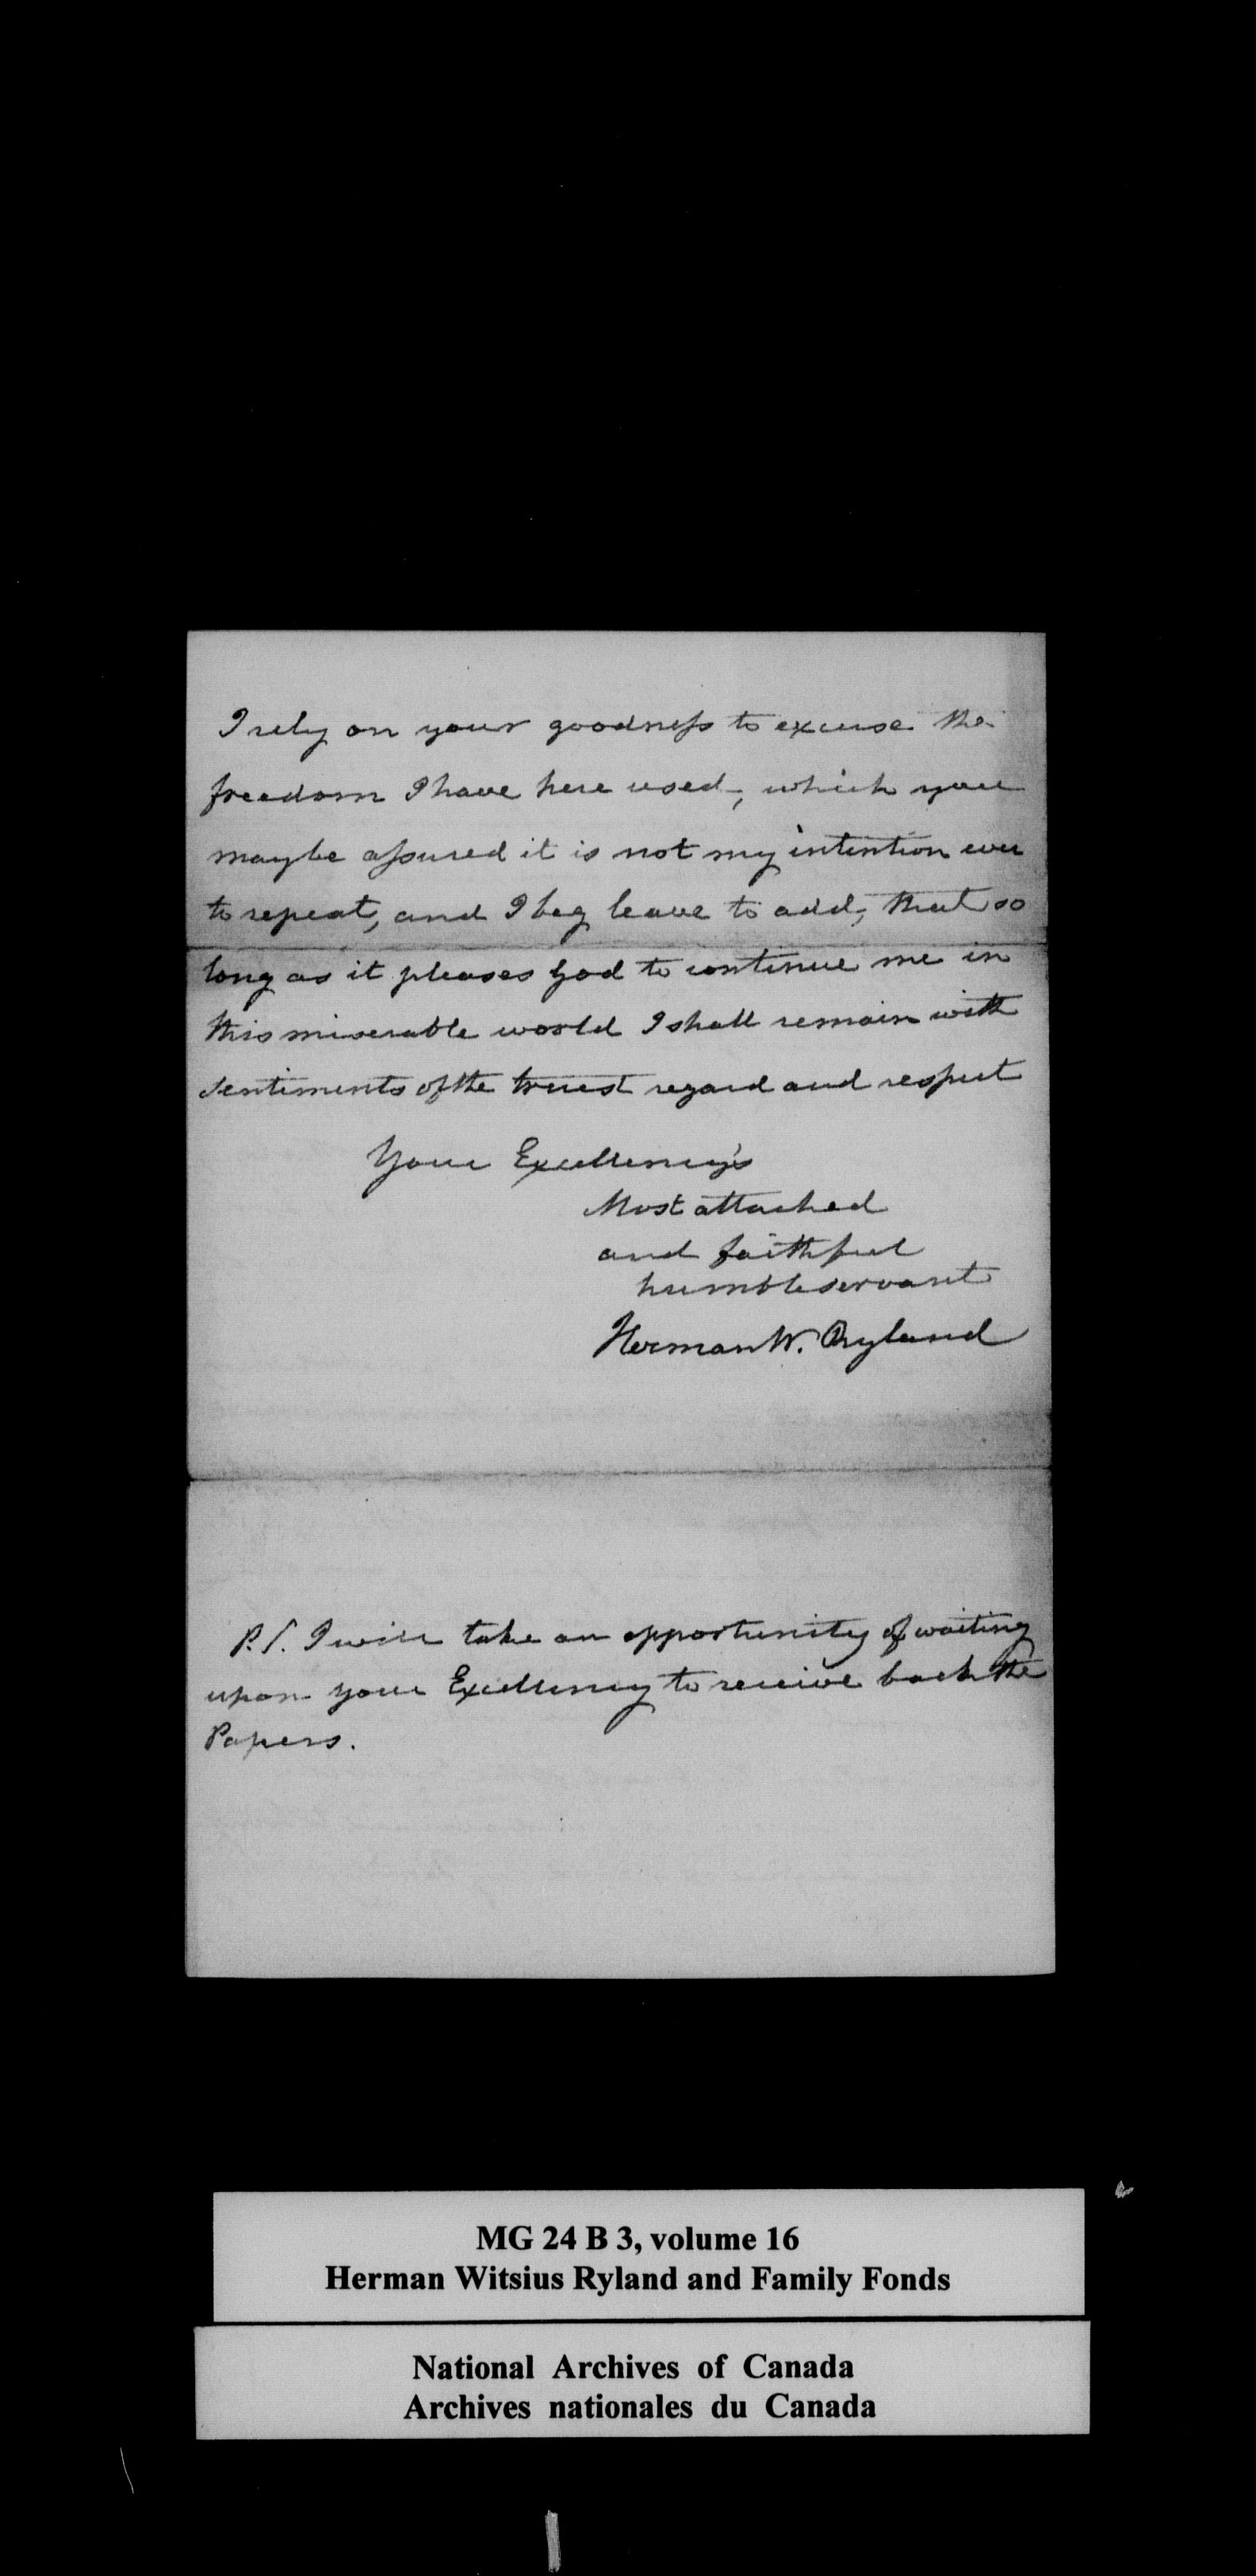 I rely on your goodness to excuse the
freedom I have here used, which you
may be assured it is not my intention ever
to repeat, and I beg leave to add, that so
long as it pleases God to continue me in
this miserable world I shall remain with
sentiments of the truest regard and respect
Your Excellency's
Most attached
and faithful
humble servant
Herman W. Ryland
P.S. I will take an opportunity of waiting
upon your Excellency to receive back the
Papers.
MG 24 B 3, volume 16
Herman Witsius Ryland and Family Fonds
National Archives of Canada
Archives nationales du Canada